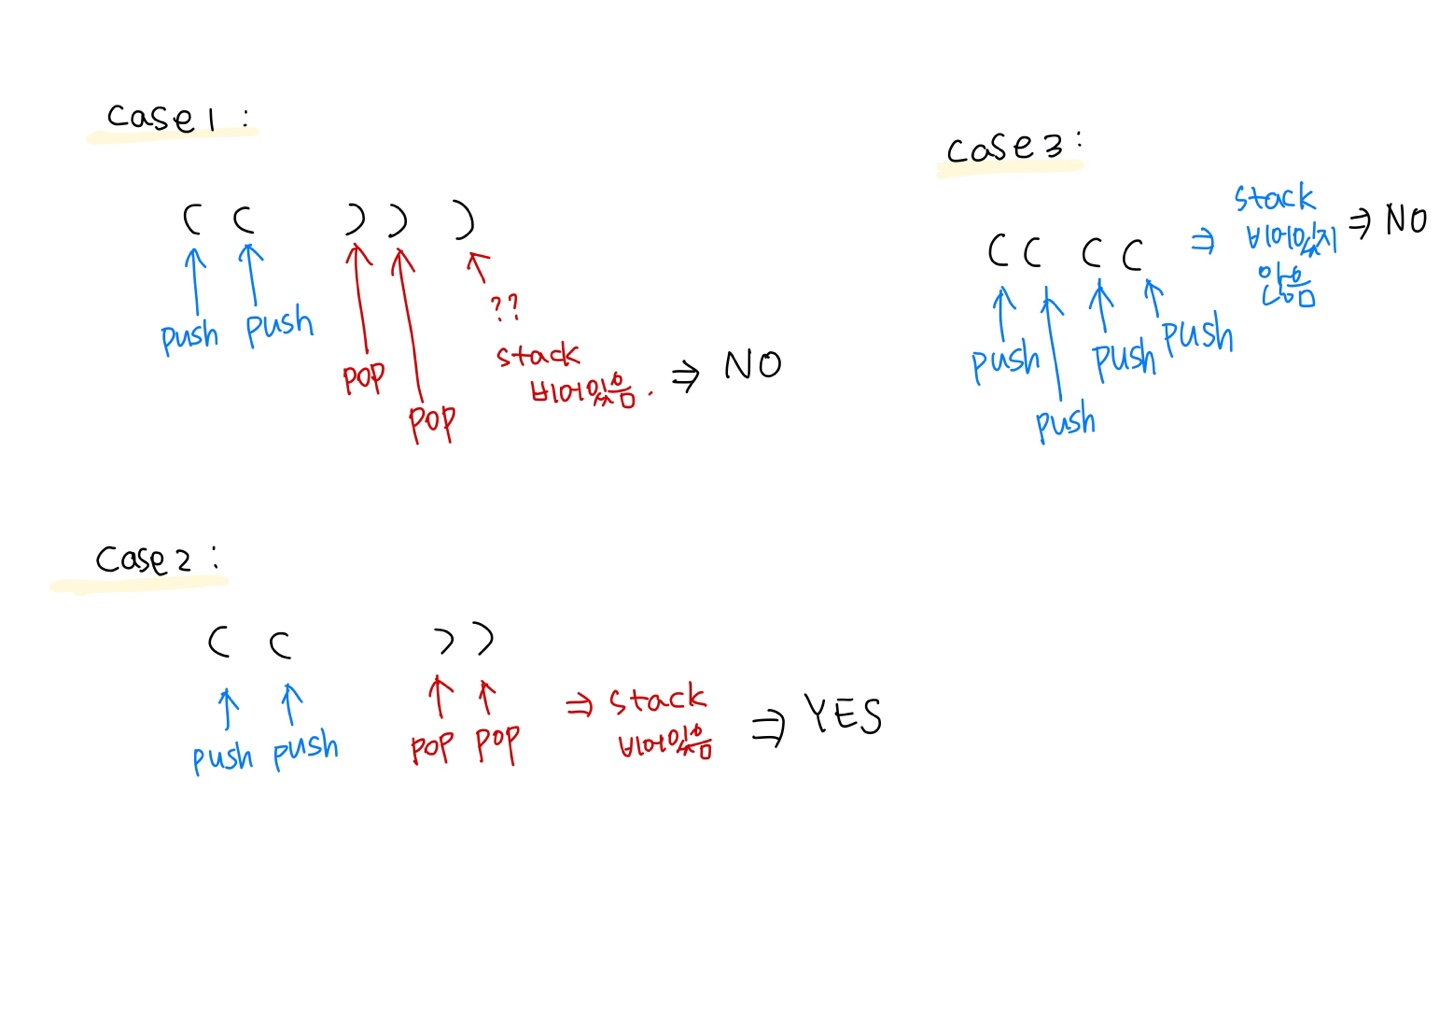 case 1 :
( ( ) ) )
push push
??
stack
비어있음.
⇒ NO
pop
pop
case 2 :
( ( ) )
push push
pop pop
⇒ stack
비어있음
⇒ YES
case 3 :
( ( ( (
push
push
push
push
⇒ stack
비어있지
않음
⇒ NO